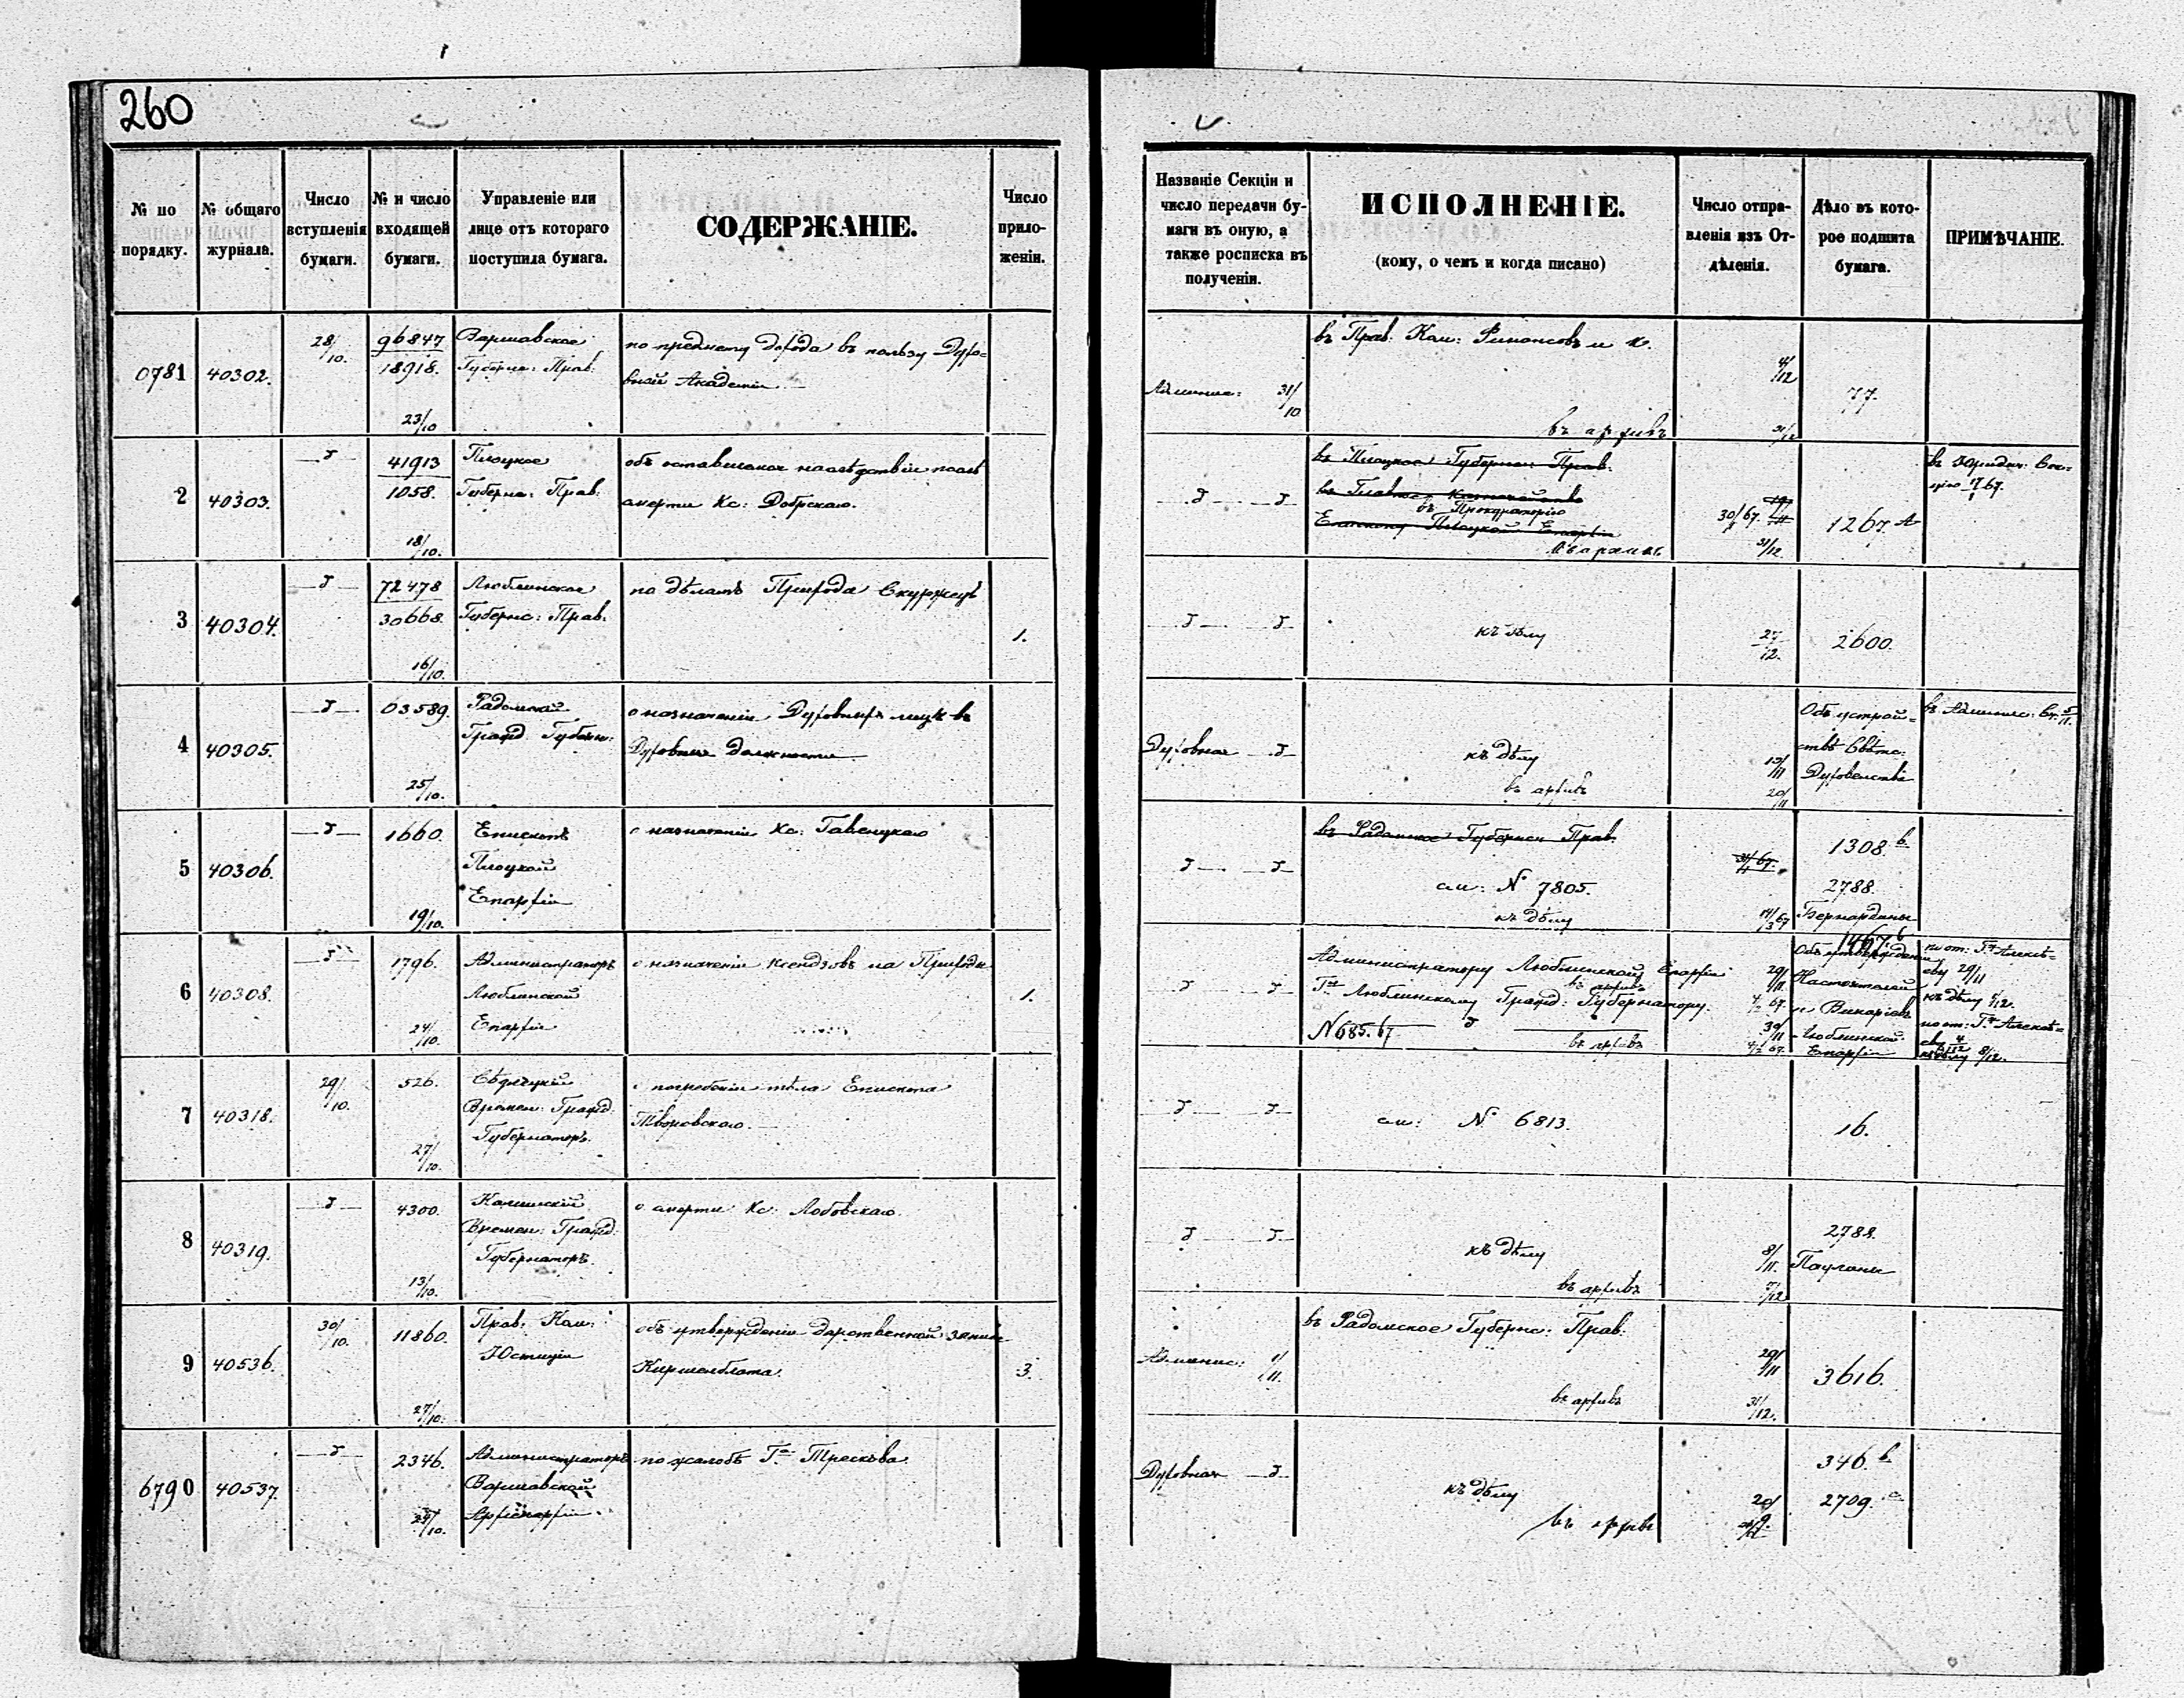 260
№ по порядку.
№ общаго журнала.
Число вступленія бумаги.
№ и число входящей бумаги.
Управленіе или лице отъ котораго поступила бумага.
СОДЕРЖАНІЕ.
Число приложеніи.
Названіе Секціи и число передачи бумаги въ оную, а также росписка въ полученіи.
ИСПОЛНЕНІЕ.
(кому, о чемъ и когда писано)
Число отправленія изъ Отдѣленія.
Дѣло въ которое подшита бумага.
ПРИМѢЧАНІЕ.
0781 40302. 28/10. 96847 Варшавское
18918. Губерн: Прав:
23/10
по предмету дохода въ пользу Духовной Академіи
Админис: 31/10
въ Прав. Ком: Финансовъ и К.
4/12
77.
въ архивъ 31/12
2 40303. 41913 Плоцкое
1058. Губерн: Прав:
18/10.
объ оставшемся наслѣдствіи послѣ
смерти Кс: Добрскаго.
въ Плоцкое Губерн: Прав:
въ Главное Казначейство
въ Прокураторію
Епископу Плоцкой Епархіи
въ архивъ
30/67.
31/12
1267. А
въ Юридич: Сек-
цію 67.
3 40304. 72478 Люблинское
30668. Губернс: Прав.
16/10.
по дѣламъ Прихода Скуржецъ
1.
къ дѣлу
27/12.
2600.
4 40305. 03589. Радомскій
Гражд Губерн:
25/10.
о назначеніи Духовныхъ лицъ въ
Духовныя должности
Духовная
къ дѣлу
въ архивъ
20/11
Объ устрой-
ствѣ Свѣтс:
Духовенства
въ Админис: Ск. 5/11.
5 40306. 1660. Епископъ
Плоцкой
Епархіи
19/10.
о назначеніи Кс: Гавлицкаго
въ Радомское Губернск Прав.
см: № 7805.
къ дѣлу
1308. в
2788.
Бернардины
6 40308. 1796. Администраторъ
Люблинской
Епархіи
24/10.
о назначеніи ксендзовъ на Приходы
1.
Администратору Люблинской Епархіи
въ архивъ
Гну Люблинскому Гражд: Губернатору.
№ 685. 67
въ архивъ
29/11.
30/11
1467. б
Объ утвержденіи
Настоятелей
и Викаріевъ
Люблинской
Епархіи
29/11
къ дѣлу
8/12.
7 40318. 29/10. 526. Сѣдлецкій
Времен: Гражд.
Губернаторъ.
27/10.
о погребеніи тѣла Епископа
Твровскаго.
см: № 6813.
16.
8 40319. 4300. Калишскій
Времен: Гражд:
Губернаторъ.
13/10.
о смерти Кс: Лобовскаго.
къ дѣлу
въ архивъ
8/11.
7/12
2788.
Паулины
9 40536. 30/10. 11860. Прав: Ком:
Юстиціи
27/10.
объ утвержденіи дарственной записи
Киршенблата.
3.
Админис: 1/11.
въ Радомское Губернс: Прав:
въ архивъ
29/11
31/12.
3616.
6790 40537. 2346. Администраторъ
Варшавской
Архіепархіи
по жалобѣ Гна Трескова
Духовная
къ дѣлу
въ архивъ
346. в
2709.